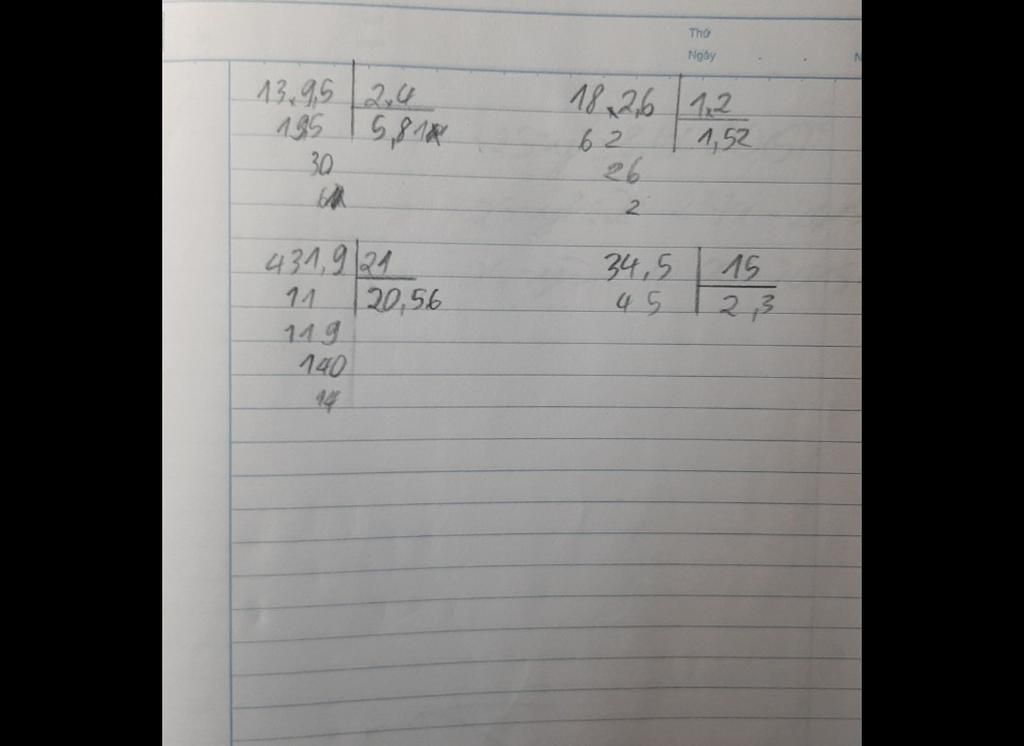 Thứ
Ngày
13,9,5 2,4
195 5,81
30
6
18,2,6 1,2
62 1,52
26
2
431,9 21
11 20,56
119
140
14
34,5 15
45 2,3